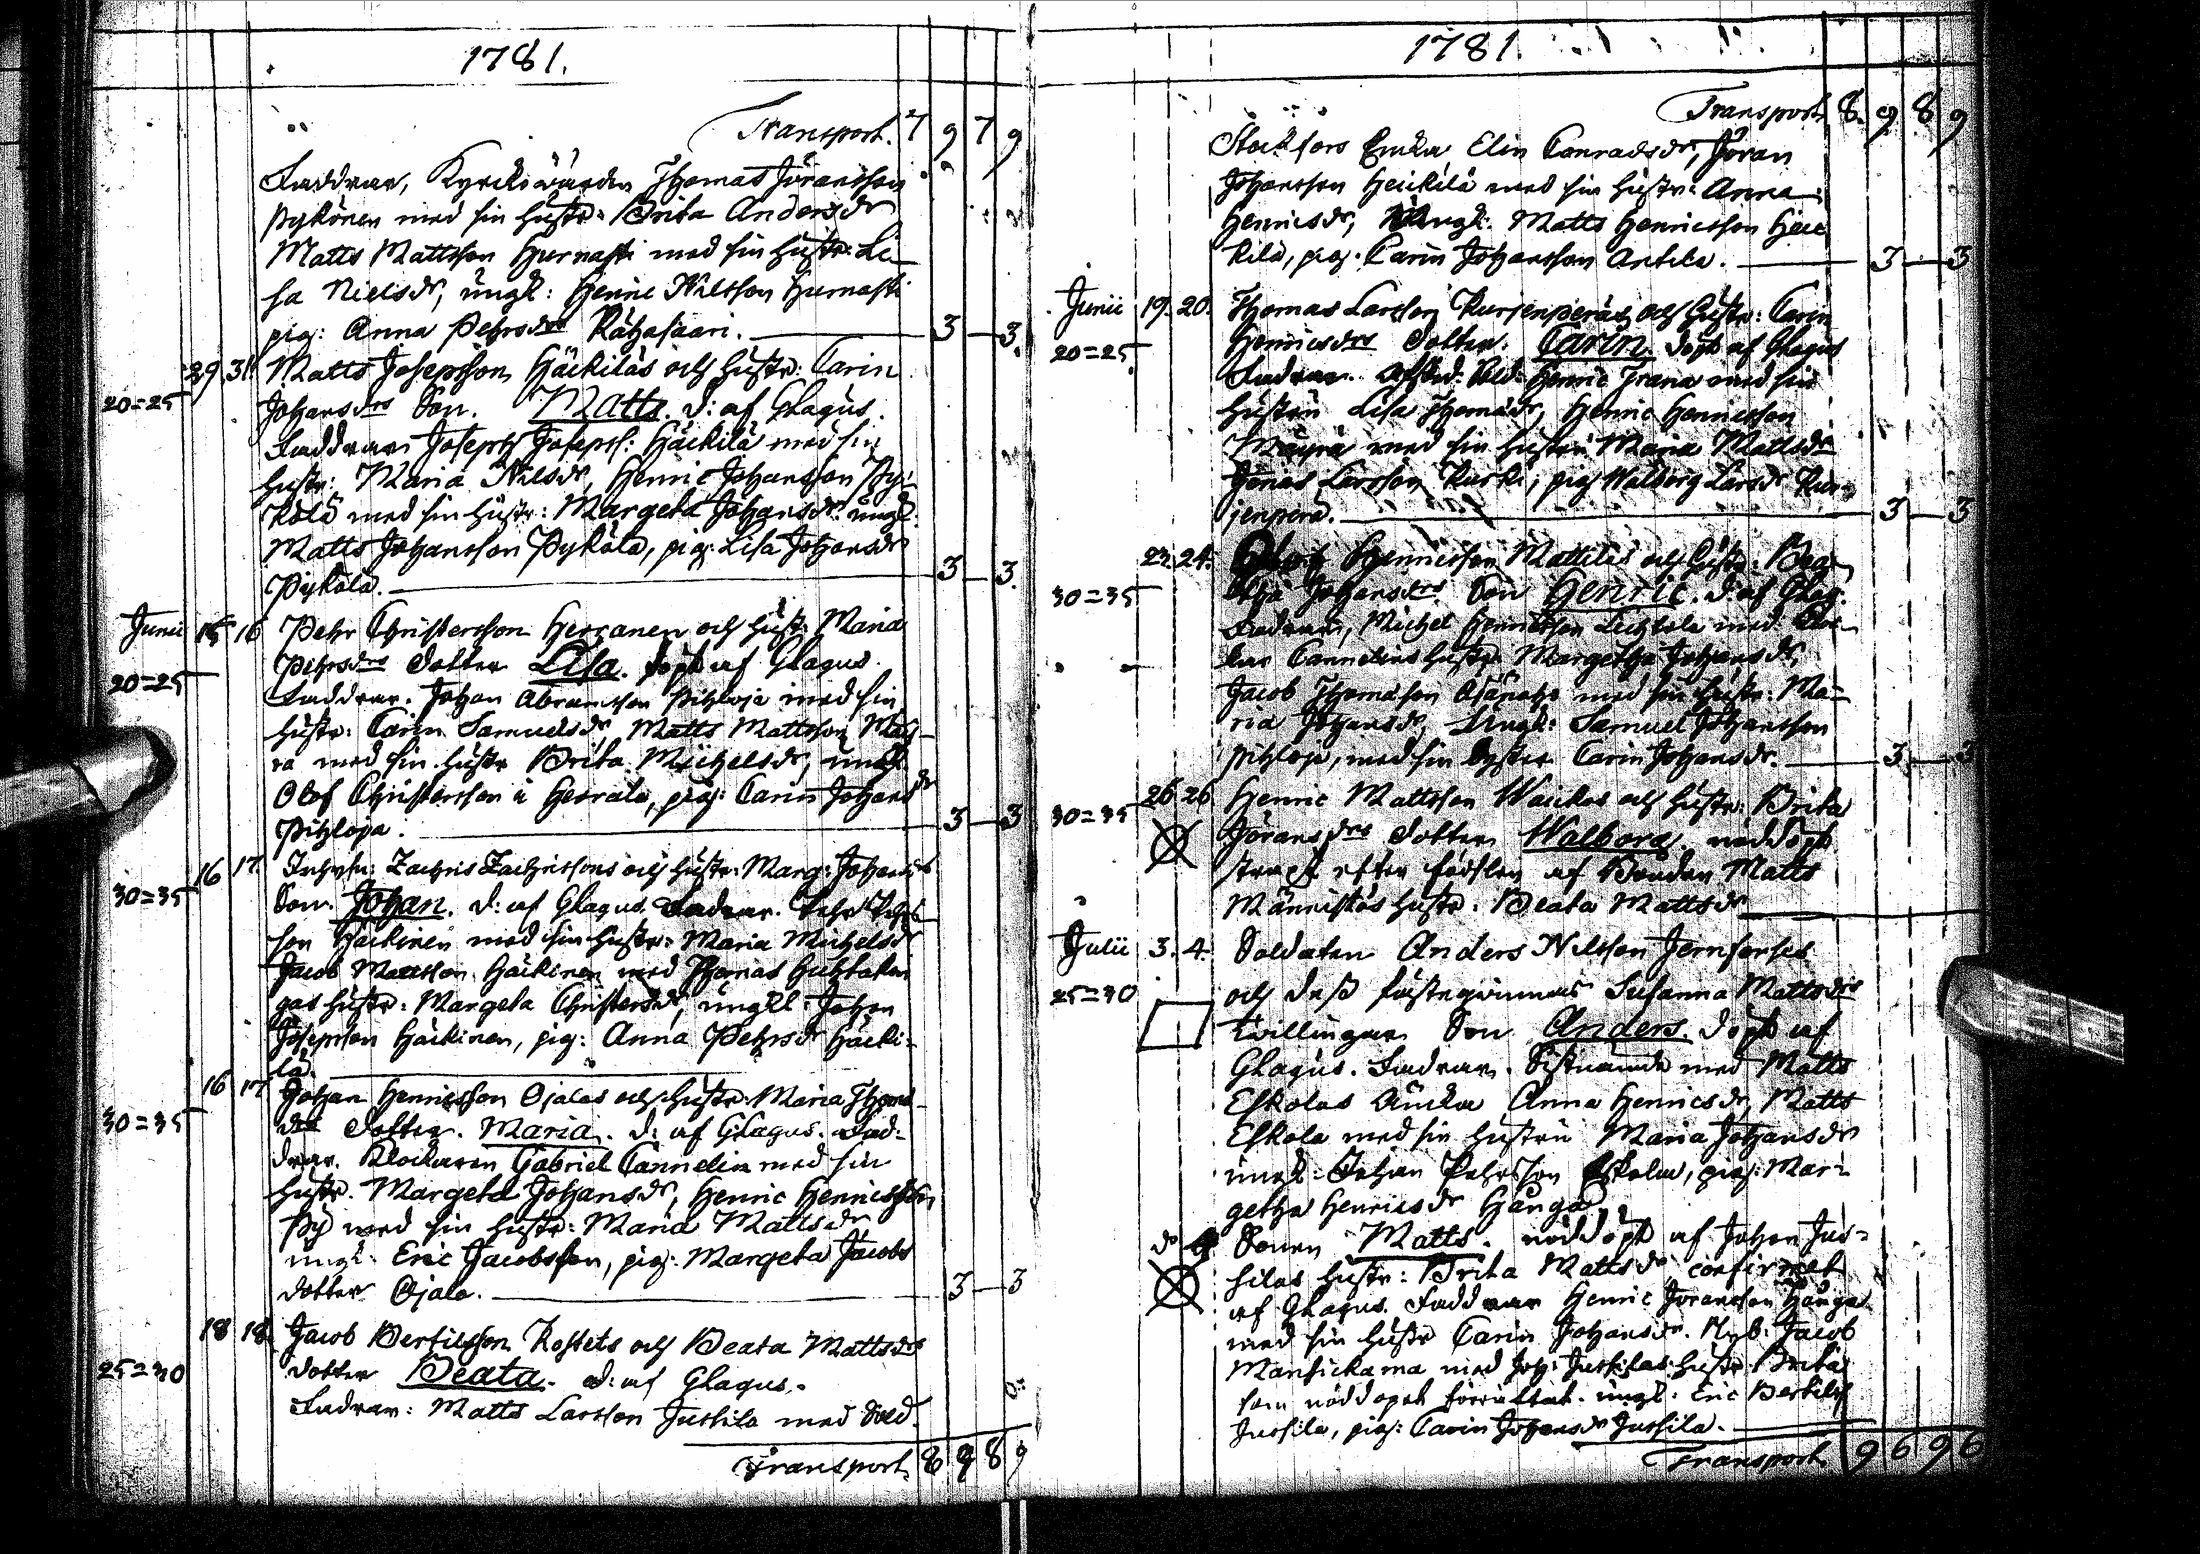 1781.
Transport. 7 9 7 9
Faddrar, Kyrckiowärden Thomas Jöransson
Pykönen med sin hustr: Brita Andersdr
Matts Mattsson Hurnasti med sin hustr: Li-
sa Nielsdr, ungk: Henric Nilsson Hurnasti
pig: Anna Pehrsdr Rähasaari. 3 3.
29 31 Matts Josepsson Häckiläs och hustr: Carin
20=25 Johansdrs Son. Matts. d: af Glagus.
Faddrar Joseph Joseps: Häckilä med sin
hustr: Maria Nilsdr, Henric Johansson Py-
kölä med sin hustr: Margeta Johansdr ungk:
Matts Johansson Pykölä, pig: Lisa Johansdr
Pykölä. 3 3.
Junii 15 16 Pehr Christersson Herranen och hustr: Maria
Pehrsdrs dotter Lisa. döpt af Glagus.
20=25 Faddrar. Johan Abramsson Pihloja med sin
hustr: Carin Samuelsdr, Matts Mattsson May-
ra med sin hustr Brita Michelsdr, ungk:
Olof Christersson i Herrala, pig: Carin Johansdr
Pihloja. 3 3
16 17 Inhys: Zachris Zachrissons och hustr: Marg: Johansdrs
30=35 Son. Johan. d: af Glagus. Fadrar. Pehr Pehrs-
son Häckinen med sin hustr: Maria Michelsdr
Jacob Mattsson Häckinen med Thomas
gas hustr: Margeta Christersdr, ungkl: Johan
Josepsson Häckinen, pig: Anna Pehrsdr Häcki-
lä.
16 17 Johan Henricsson Ojalas och hustr: Maria Thoms-
30=35 drs dotter. Maria. d: af Glagus. Fad-
drar. Klockaren Gabriel Cannelin med sin
hustr. Margeta Johansdr, Henric Henricsson
Py med sin hustr: Maria Mattsdr
ungk: Eric Jacobsson, pig: Margeta Jacobs
dotter Ojala. 3 3
18 18 Jacob Bertilsson Kostets och Beata Mattsdrs
25=30 dotter Beata. d: af Glagus.
Fadrar: Matts Larsson Jussila med Sold.
Transport 8 9 8 9
1781.
Transport. 8 9 8 9
Stockfors Enka Elin Conradsdr, Jöran
Johansson Heickilä med sin hustr: Anna
Henricsdr, Ungk: Matts Henricsson Heic
kilä, pig: Carin Johansson Antila. 3 3
Junii 19 20. Thomas Larsson Kurjenperäs och hustr: Carin
20=25 Henricsdrs dotter. Carin. döpt af Glagus
Fadrar. Afsked: Sold: Henric Trana med sin
hustru Lisa Thomädr, Henric Henricsson
Mäyrä med sin hustru Maria Mattsdr
Jonas Larsson Kurki, pig Walborg Larsdr Kur-
jenperä. 3 3
23 24. Henricsson Mattilas och hustr: Bea-
30=35 tha Johansdrs Son Henric. d: af Glag:
Fadrar, Michel Henricsson Lechtola med
Cannelins hustr: Margetha Johansdr,
Jacob Thomasson med sin hustr: Ma-
ria Johansdr, Ungk: Samuel Johansson
Pihloja, med sin syster Carin Johansdr. 3 3
26 26 Henric Mattsson Waickos och hustr: Brita
30=35 Jöransdrs dotter Walborg. nöddöpt
straxt efter födslen af Bonden Matts
Männistös hustr: Beata Mattsdr
Julii 3. 4. Soldaten Anders Nilsson Jernforses
25=30 och dess fästeqvinnas Susanna Mattsdrs
tvillingar Son Anders. döpt af
Glagus. Fadrar. Sistnämde med Matts
Eskolas Änka Anna Henricsdr, Matts
Eskola med sin hustru Maria Johansdr
ungk: Johan Pehrsson Eskola, pig: Mar-
getha Henricsdr Hånga.
do Sonen Matts. nöddöpt af Johan Jus-
silas hustr: Brita Mattsdr confirmet
af Glagus. Faddrar Henric Joransson Hånga
med sin hustr Carin Johansdr. Nyb: Jacob
Mansickama med Joh: Jussilas hustr: Brita
som nöddopet förrättat. ungk: Eric Bertils
Jussila, pig: Carin Johansdr Jussila.
Transport 9 6 9 6